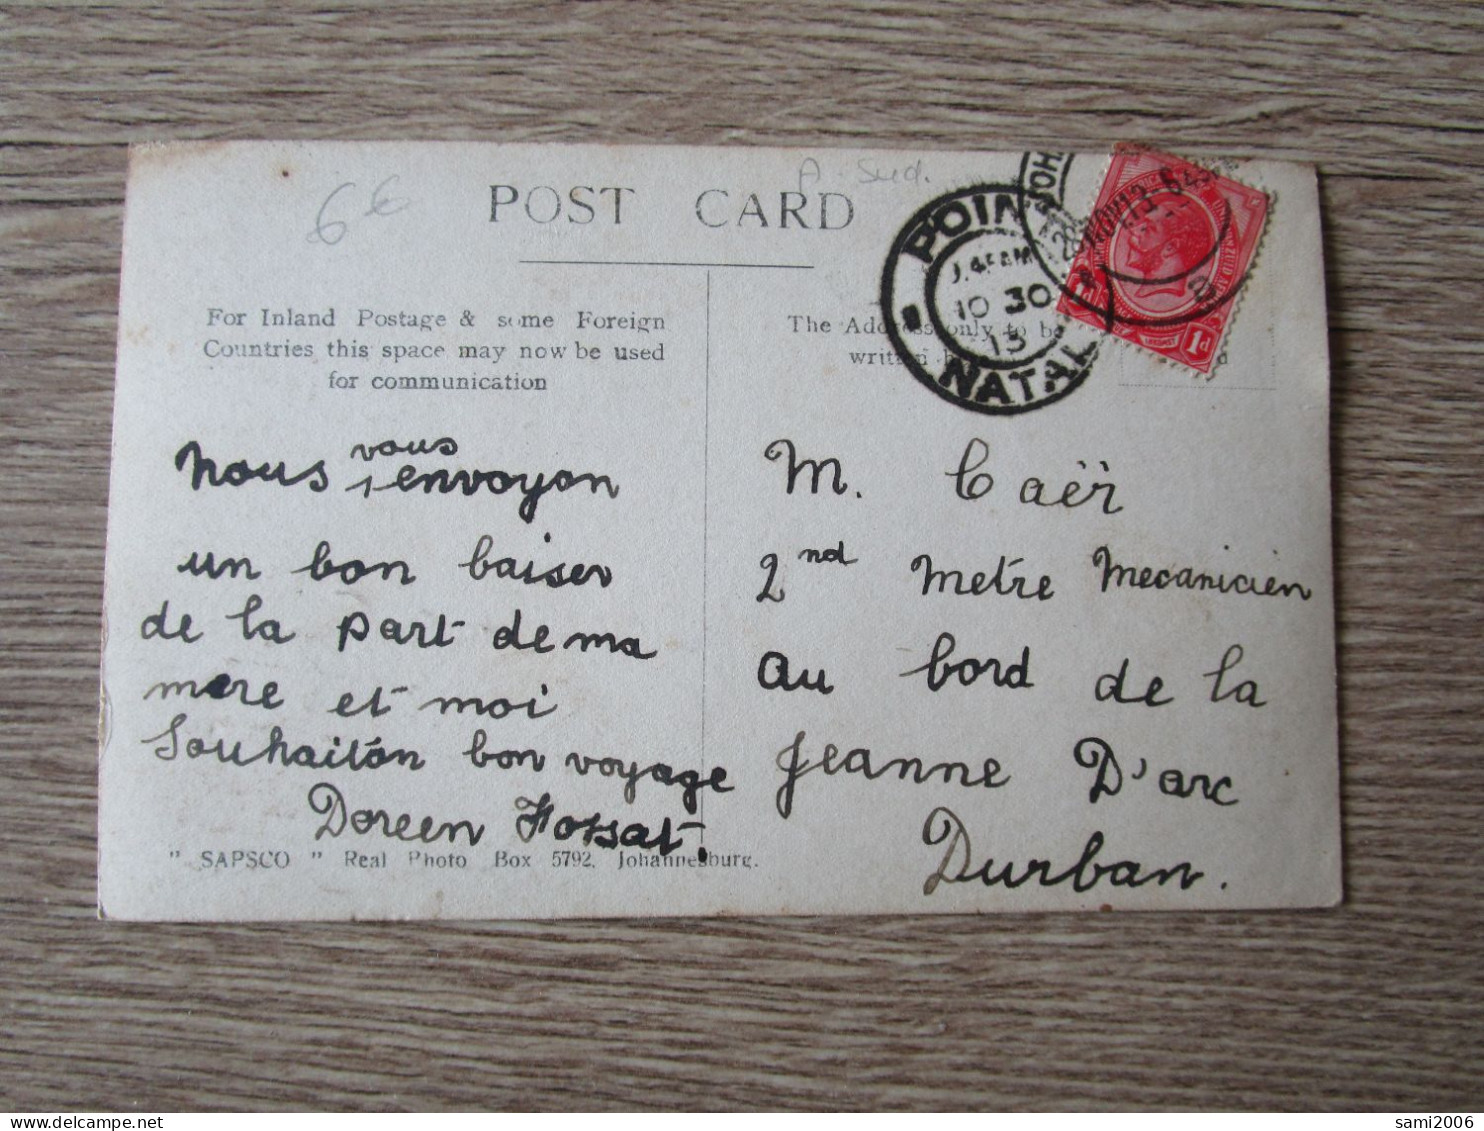 6€
A. Sud.
POST CARD
For Inland Postage & some Foreign
Countries this space may now be used
for communication
The Address only to be
written
POINT
10 30
13
NATAL
1d
nous vous envoyon
un bon baiser
de la part de ma
mere et moi
Souhaitón bon voyage
Doreen Fossat.
M. Caër
2nd metre mecanicien
au bord de la
Jeanne D'arc
Durban.
" SAPSCO " Real Photo Box 5792, Johannesburg.
sami2006